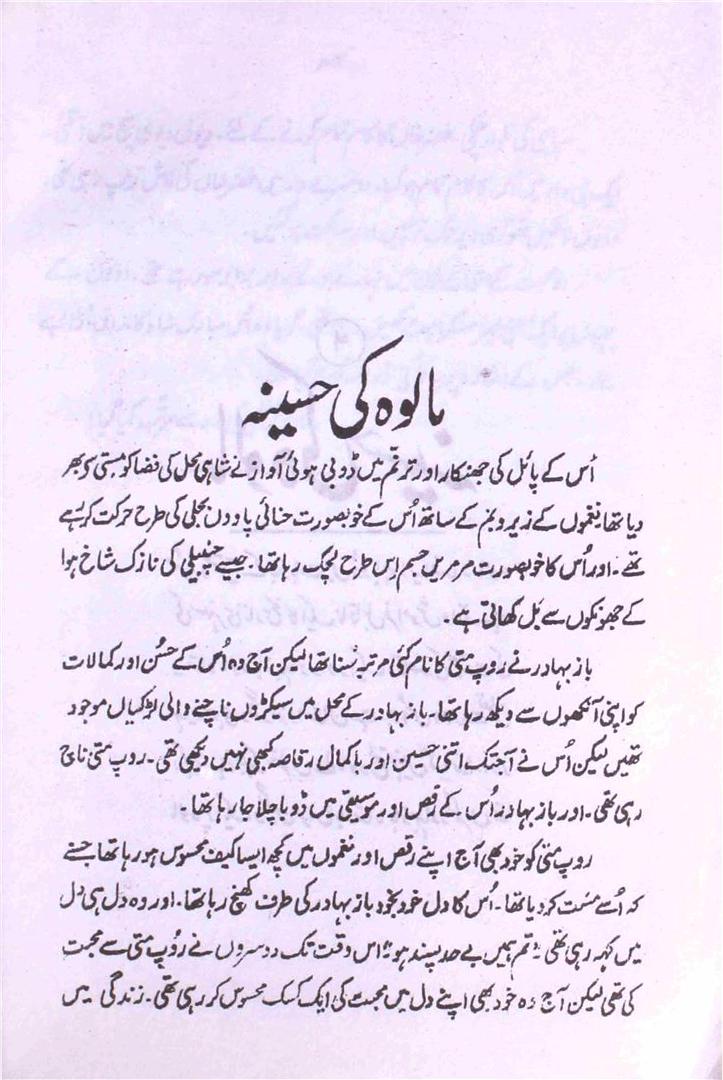 مالوہ کی حسینہ
اُس کے پائل کی جھنکار اور ترنّم میں ڈوبی ہوئی آواز نے شاہی محل کی فضا کو مستی سے بھر
دیا تھا نغموں کے زیر و بم کے ساتھ اُس کے خوبصورت حنائی پاؤں بجلی کی طرح حرکت کر رہے
تھے۔ اور اُس کا خوبصورت مرمریں جسم اِس طرح لچک رہا تھا۔ جیسے چنبیلی کی نازک شاخ ہوا
کے جھونکوں سے بَل کھاتی ہے۔
باز بہادر نے روپ متی کا نام کئی مرتبہ سُنا تھا لیکن آج وہ اُس کے حُسن اور کمالات
کو اپنی آنکھوں سے دیکھ رہا تھا۔ باز بہادر کے محل میں سیکڑوں ناچنے والی لڑکیاں موجود
تھیں لیکن اُس نے آجتک اتنی حسین اور باکمال رقاصہ کبھی نہیں دیکھی تھی۔ روپ متی ناچ
رہی تھی۔ اور باز بہادر اُس کے رقص اور موسیقی میں ڈوبا چلا جا رہا تھا۔
روپ متی کو خود بھی آج اپنے رقص اور نغموں میں کچھ ایسا کیف محسوس ہو رہا تھا جسنے
کہ اُسے مست کر دیا تھا۔ اُس کا دل خود بخود باز بہادر کی طرف کھنچ رہا تھا۔ اور وہ دل ہی دل
میں کہہ رہی تھی "تم ہمیں بے حد پسند ہو" اس وقت تک دوسروں نے روُپ متی سے محبت
کی تھی لیکن آج وہ خود بھی اپنے دل میں محبت کی ایک کسک محسوس کر رہی تھی۔ زندگی میں